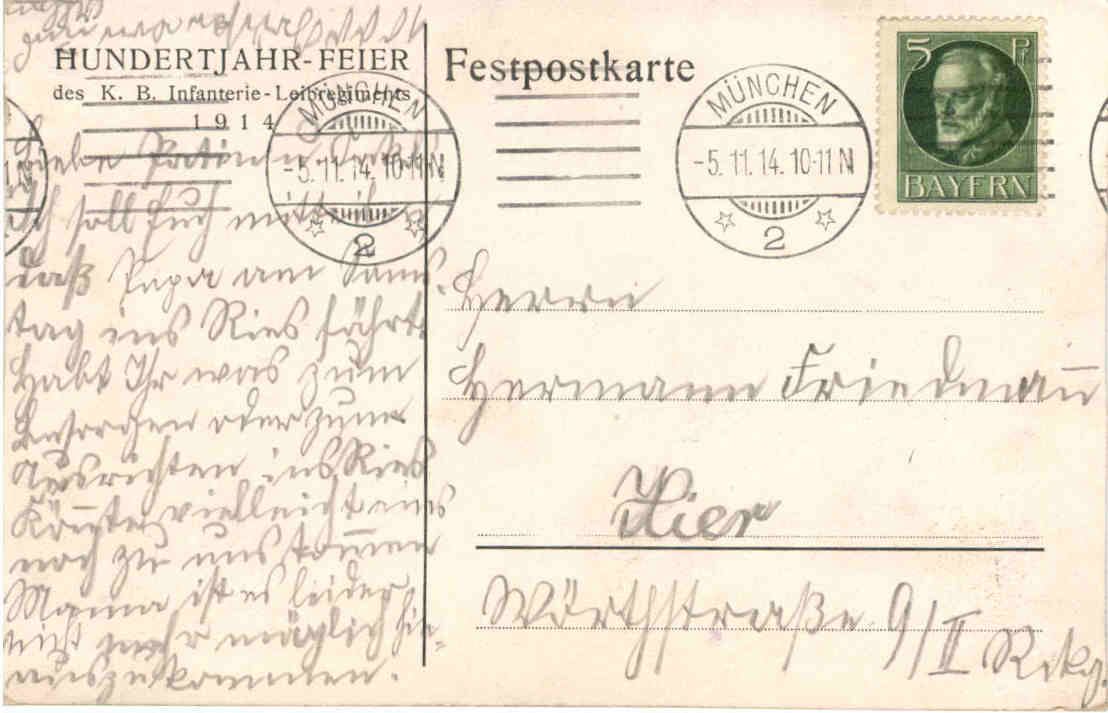 HUNDERTJAHR-FEIER
des K. B. Infanterie-Leibregiments
1914
Festpostkarte
MÜNCHEN
-5.11.14. 10-11 N
2
MÜNCHEN
-5.11.14. 10-11 N
2
5 Pf
BAYERN
ich soll Euch mitteilen
daß Papa am Sams-
tag ins Ries fährt.
Habt Ihr was zum
Besorgen oder zum
Ausrichten ins Ries
Könnte vielleicht eins
noch zu uns kom̄en
Mama ist es leider
nicht mehr möglich hin-
auszukommen.
Herrn
Hermann Friedman̄
Hier
Wörthstraße 9/II Rckg.